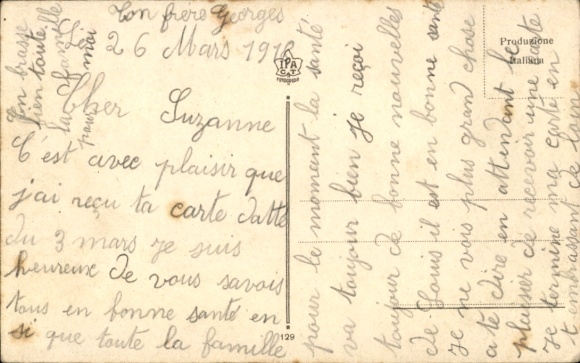 Ton frère Georges
26 Mars 1918
Cher Suzanne
C'est avec plaisir que
j'ai reçu ta carte datté
du 3 mars je suis
heureux de vous savois
tous en bonne santé en
si que toute la famille
pour le moment la santé
va toujour bien je reçoi
toujour de bonne nouvelles
de Louis il est en bonne santé
je ne vois plus grand chose
a te dire en attendent le
plaisier de recevoir une carte
Je termine ma carte en
t'embrassant de loin
En brasse
bien toute
la famille
pour moi
Produzione
Italiana
IPA
C.T.
129